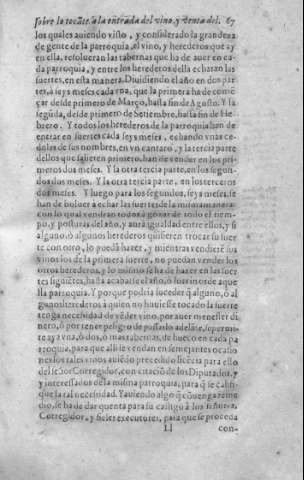 sobre lo tocãte a la entrada del vino, y venta del. 67
los quales auiendo visto, y considerado la grandeza
de gente de la parroquia, el vino, y herederos que ay
en ella, resolueran las tabernas que ha de auer en ca-
da parroquia, y entre los herederos della echaran las
suertes, en esta manera. Diuidiendo el año en dos par-
tes, a seys meses cada vna, que la primera ha de comẽ-
çar desde primero de Março, hasta fin de Agosto. Y la
segũda, desde primero de Setiembre, hasta fin de He-
brero. Y todos los herederos de la parroquia han de
entrar en suertes cada seys meses, echando vnas ce-
dulas de sus nombres, en vn cantaro, y la tercia parte
dellos que salieren primero, han de vender en los pri-
meros dos meses. Y la otra tercia parte, en los segun-
dos dos meses. Y la otra tercia parte, en los terceros
dos meses. Y luego para los segundos seys meses, se
han de boluer a echar las suertes de la misma manera:
con lo qual vendran todos a gozar de todo el tiem-
po, y posturas del año, y aura igualdad entre ellos, y si
alguno, o algunos herederos quisieren trocar su suer
te con otro, lo puedã hazer, y mientras vendieré sus
vinos los de la primera suerte, no puedan vender los
otros herederos, y lo mismo se ha de hazer en las suer
tes siguiẽtes, hasta acabarse el año, o los vinos de aque
lla parroquia. Y porque podria suceder q̃ alguno, o al
gunos herederos a quien no huuiesse tocado la suerte
tẽga necesidad de vẽder vino, por auer menester di-
nero, o por tener peligro de passarlo adelãte, se permi-
te aya vna, o dos, o mas tabernas, de hueco en cada pa
rroquia, para que alli se vendan en semejantes ocasio
nes los tales vinos auiẽdo precedido licẽcia para ello
del señor Corregidor, con citaciõ de los Diputados, y
y interessados de la misma parroquia, para q̃ se calisi-
que la tal necesidad. Y auiendo algo q̃ cõuenga reme
dio, se ha de dar quenta para su castigo a los señores,
Corregidor, y fieles executores, para que se proceda
Ll con-